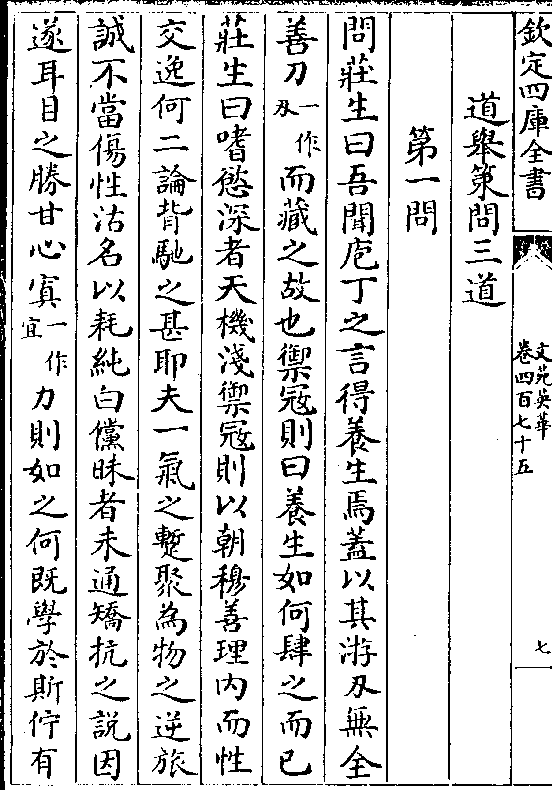 欽定四庫全書
文苑英華
卷四百七十五
七
道舉策問三道
第一問
問莊生曰吾聞庖丁之言得養生焉蓋以其游刃無全
善刀一作刃而藏之故也禦冦則曰養生如何肆之而已
莊生曰嗜慾深者天機淺禦冦則以朝穆善理内而性
交逸何二論背馳之甚耶夫一氣之蹔聚為物之逆旅
誠不當傷性沽名以耗純白儻昧者未通矯抗之説因
遂耳目之勝甘心寘一作宜力則如之何既學於斯佇有